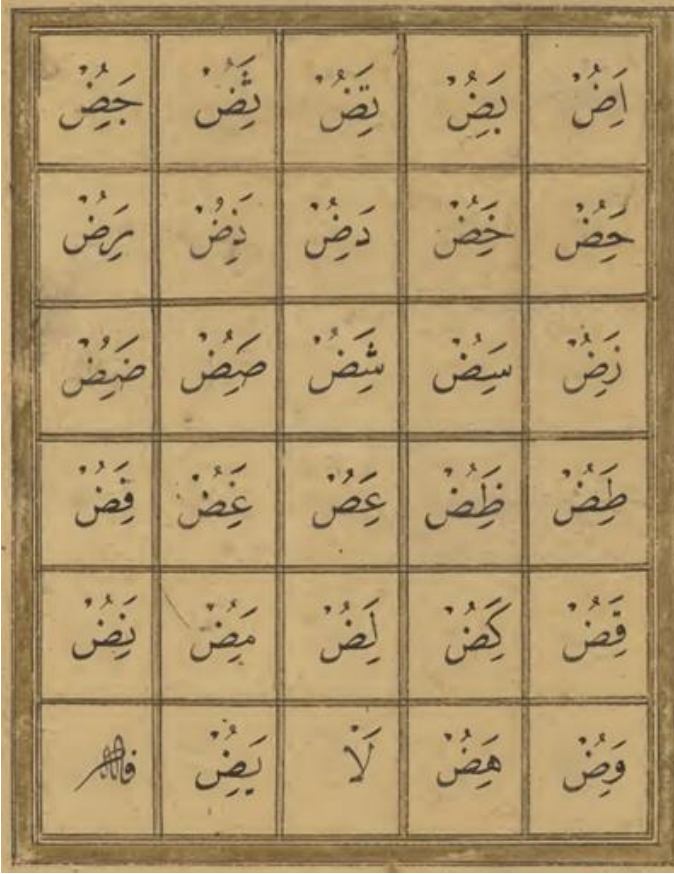 اَِضُْ بَِضُْ تَِضُْ ثَِضُْ جَِضُْ
حَِضُْ خَِضُْ دَِضُْ ذَِضُْ رَِضُْ
زَِضُْ سَِضُْ شَِضُْ صَِضُْ ضَِضُْ
طَِضُْ ظَِضُْ عَِضُْ غَِضُْ فَِضُْ
قَِضُْ كَِضُْ لَِضُْ مَِضُْ نَِضُْ
وَِضُْ هَِضُْ لَاْ يَِضُْ